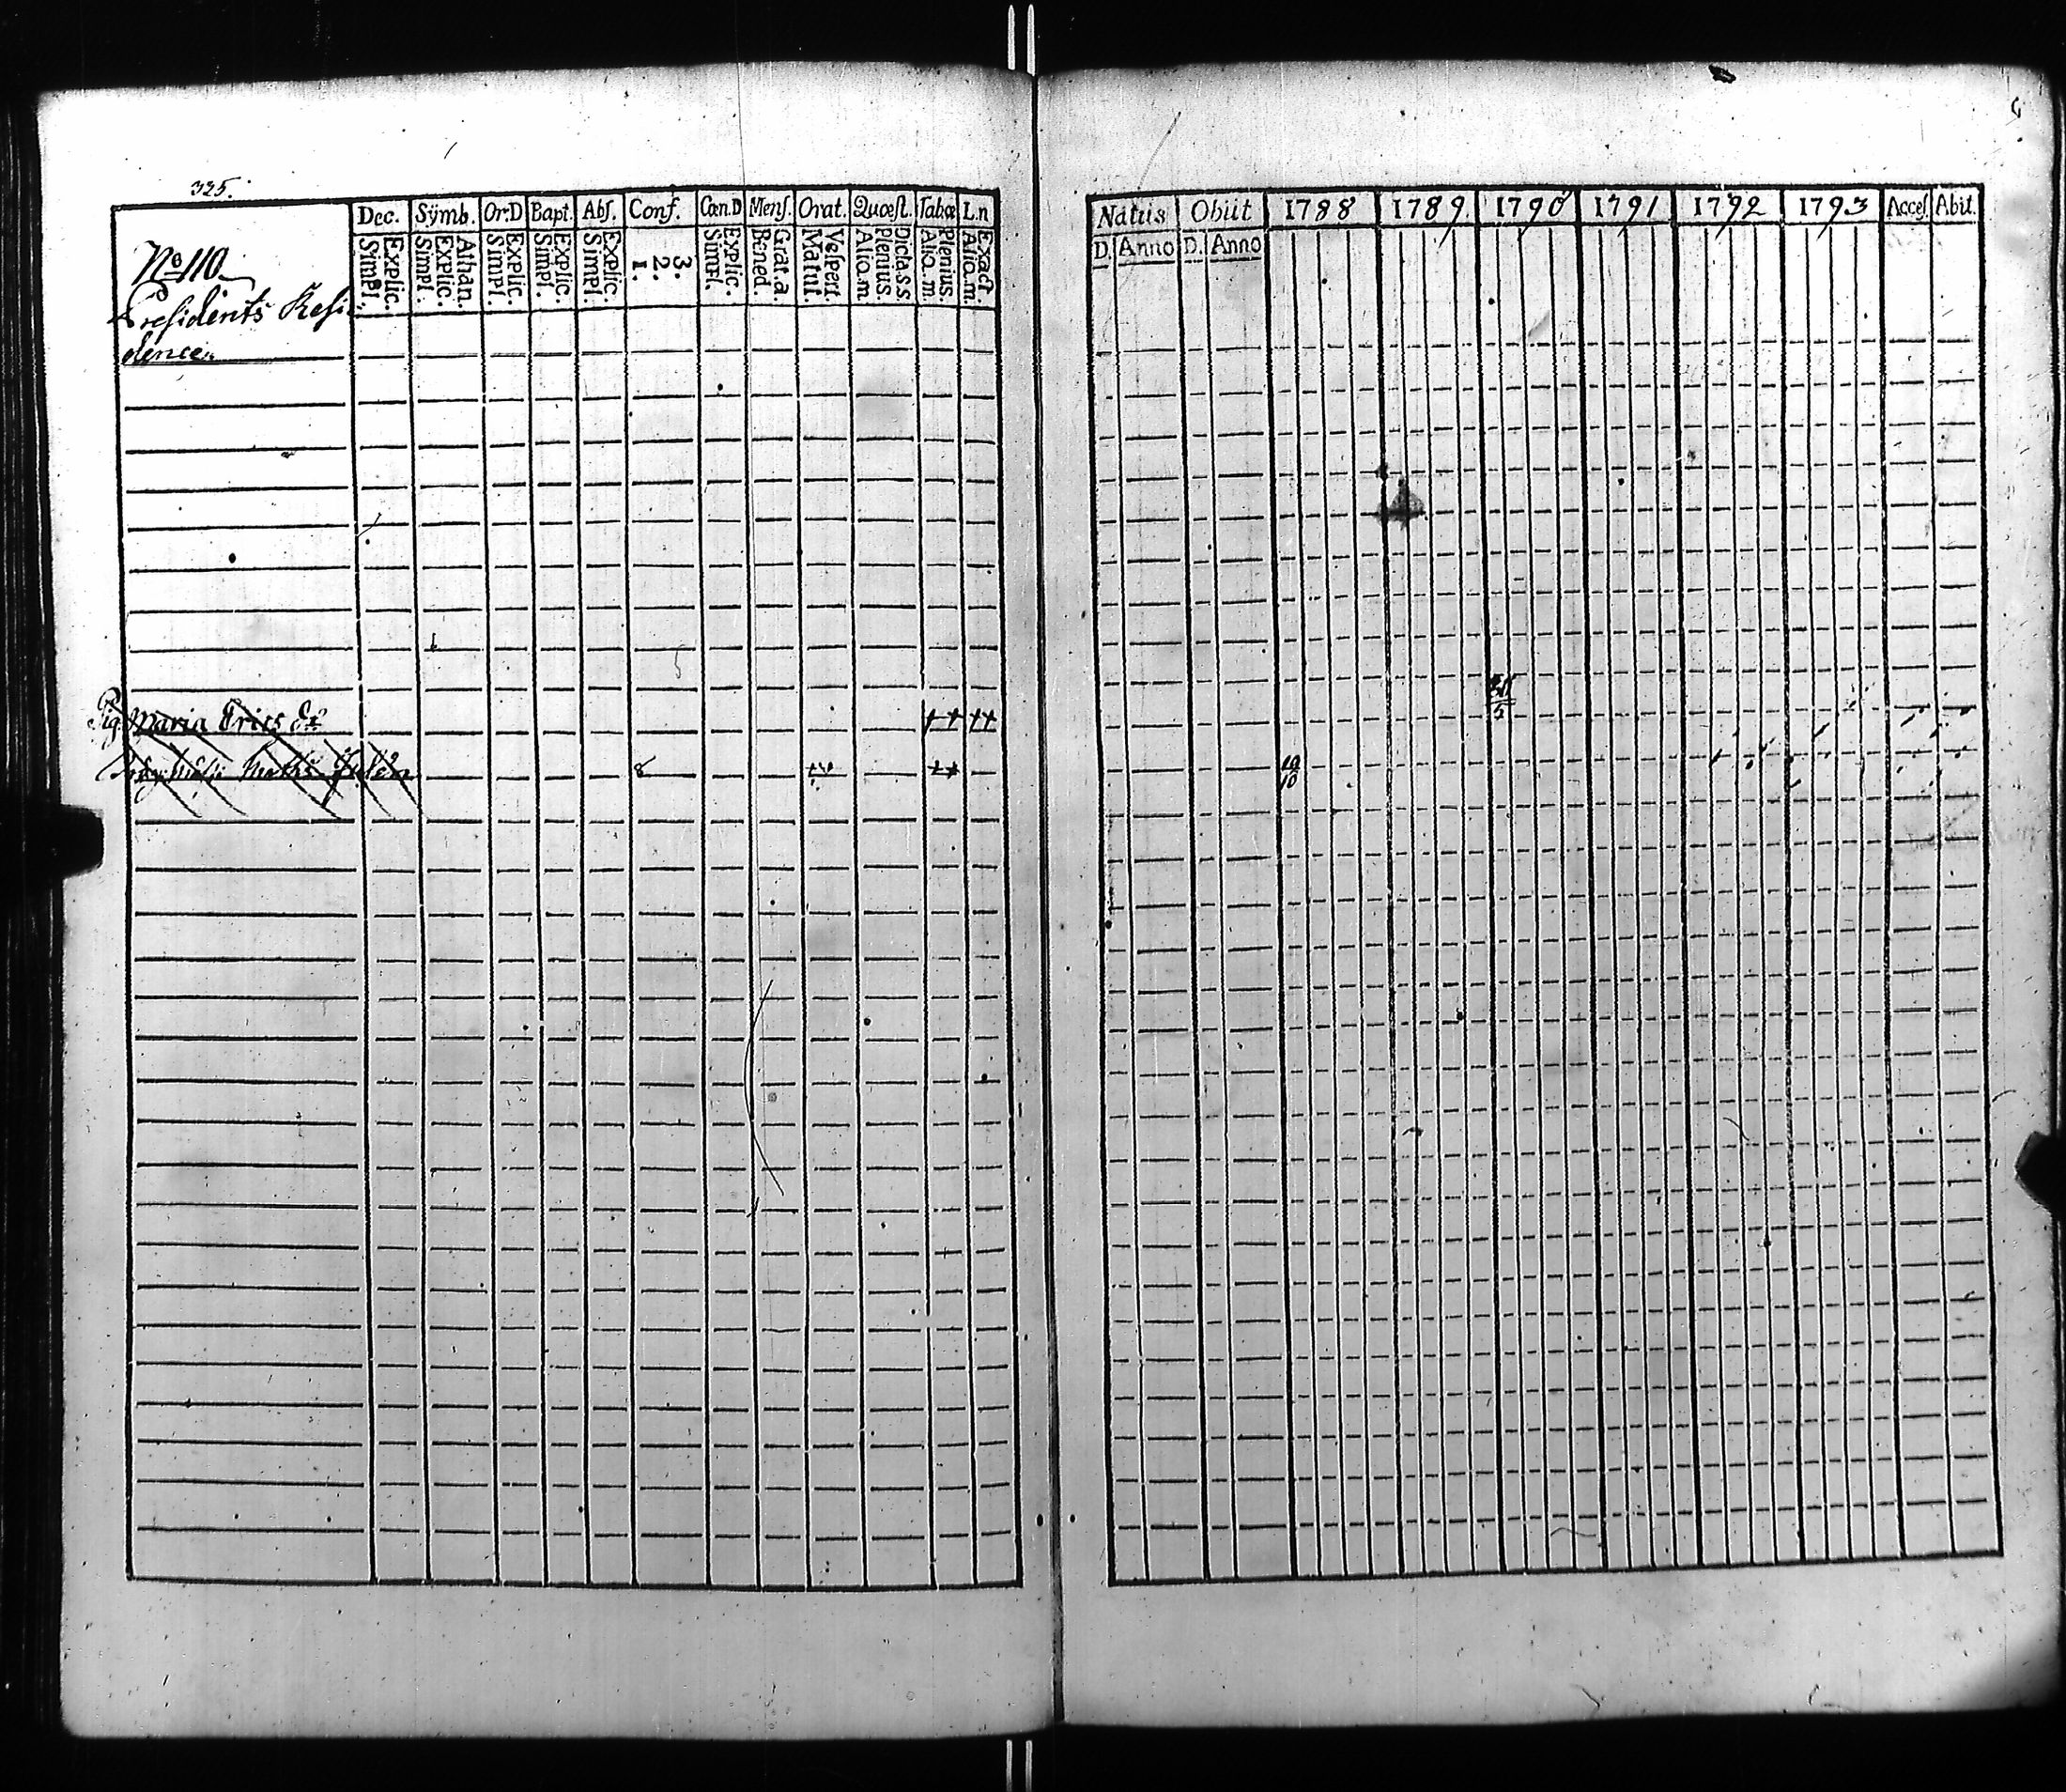 325.
No 110.
Presidents Resi-
dence.
Dec. Symb. Or:D Bapt. Abs. Conf. Cœn.D Mens. Orat. Quæst. Tabœ L.n
Explic. Simpl. Athan. Explic. Simpl. Explic. Simpl. Explic. Simpl. Explic. Simpl. 3. 2. 1. Explic. Simpl. Grat.a. Bened. Vespert. Matut. Dicta.s.s. Plenius. Alio.m. Plenius. Alio.m. Exact. Alio.m.
Pig. Maria Ericsd:r ++ ++
8 ++
Natus Obiit 1788 1789 1790 1791 1792 1793 Acces. Abit.
D. Anno D. Anno
5
19
10